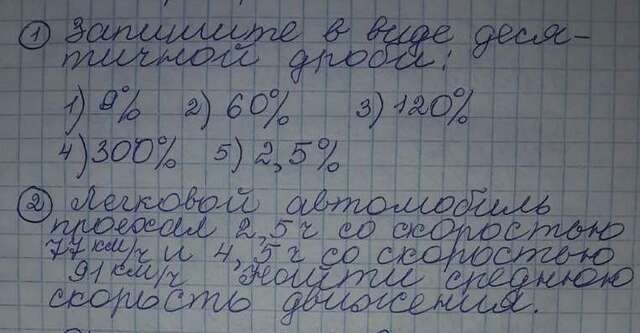 ① Запишите в виде деся-
тичной дроби:
1) 9% 2) 60% 3) 120%
4) 300% 5) 2,5%
② Легковой автомобиль
проехал 2,5 ч со скоростью
77 км/ч и 4,5 ч со скоростью
91 км/ч. Найти среднюю
скорость движения.